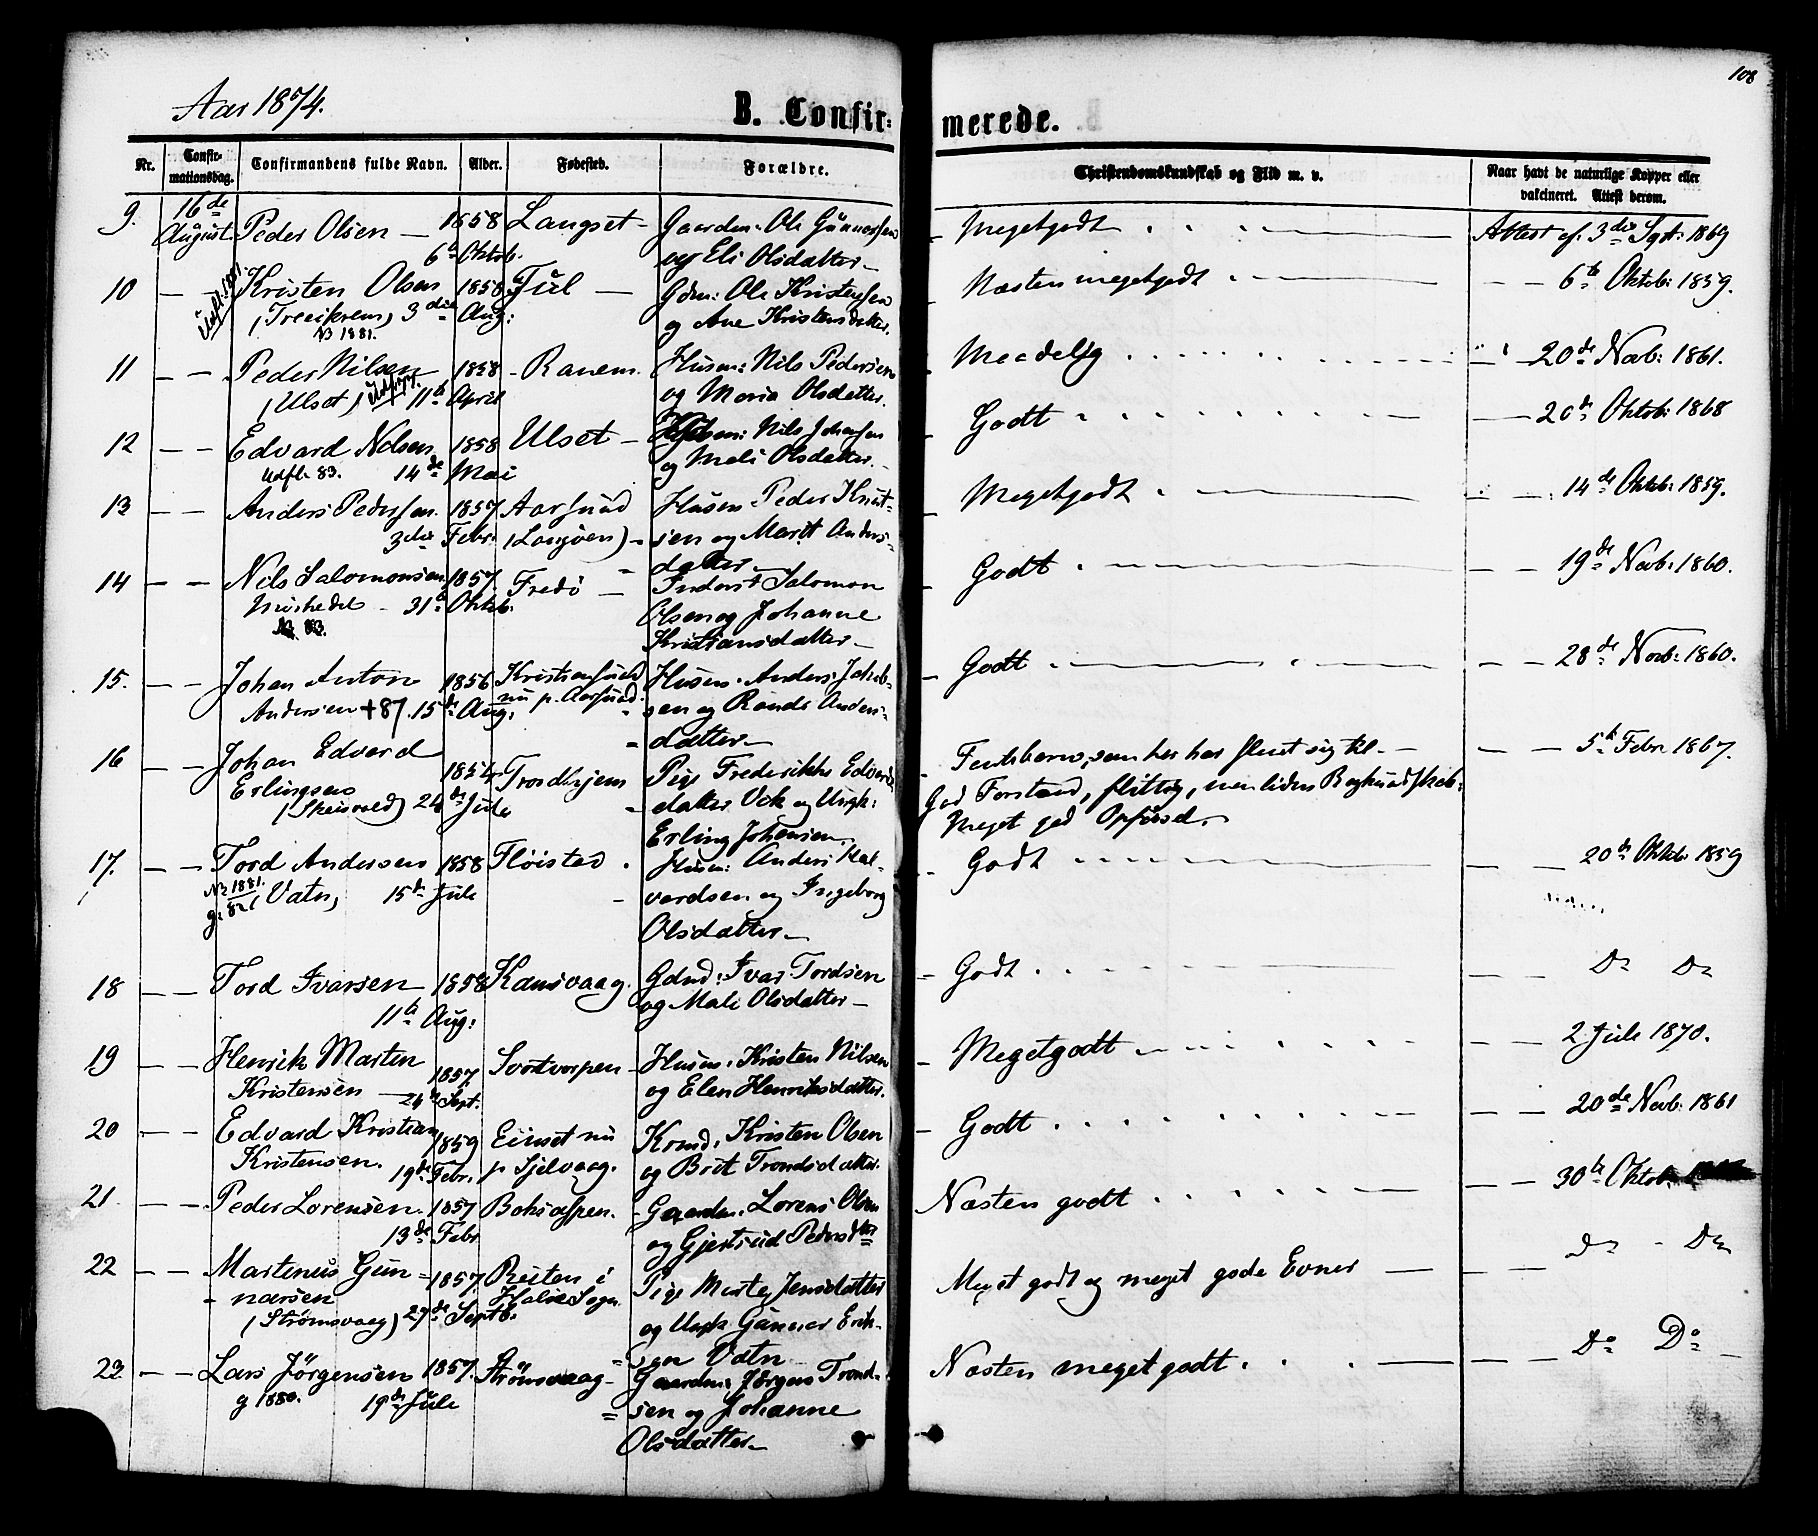 108
Aar 1874.
B. Confirmerede.
Nr. Confirmationsdag. Confirmandens fulde Navn. Alder. Fødested. Forældre. Christendomskundskab og Flid m. v. Naar havt de naturlige Kopper eller vakcineret. Attest derom.
9. 16de August Peder Olsen — 1858 Langset — Gaardm: Ole Gunnersen Megetgodt Attest af 3die Sept: 1869
6te Oktob. og Eli Olsdatter —
10 — — Kristen Olsen 1858 Gdm: Ole Kristensen Næsten megetgodt — — 6te Oktob: 1859.
3die Aug: og Ane Kristensdatter.
N 1881.
11 — — Peder Nilsen 1858 - Ranem. Husm: Nils Pedersen Maadelig 20de Novb: 1861.
(Ulset) 11te April og Maria Olsdatter.
12 — — Edvard Nelsen 1858 Ulset — Nils Johansen Godt — 20de Oktob: 1868
Udfl. 83. 14de Mai og Mali Olsdatter.
13 — — Anders Pedersen. 1857 Aarsund Husm: Peder Knut- Megetgodt — — 14de Oktob: 1859.
3die Febr: (Langøen) — sen og Marit Anders-
datter —
14 — — Nils Salomonsen 1857. Fredö — Inderst Salomon Godt — — 19de Novb: 1860.
31te Oktob. Olsen og Johanne
Kristiansdatter —
15. — — Johan Anton 1856 Kristiansund Husm. Anders Jakob- Godt — — 28de Novb: 1860.
Andersen +87. 15de Aug: nu p. Aarsund. sen og Rande Anders-
datter —
16 — — Johan Edvard 1854 Trondhjem Pige Frederikke Edvards- som her har sig til — — — 5te Febr 1867.
Erlingsen datter Vek og Ungk: God Forstand, flittig, men liden Bogkundskab.
24de Jule Erling Johansen. Meget god Opførsel.
17. — — Tord Andersen 1858 Fløistad. Husm: Anders Hal- Godt — — 20de Oktob: 1859
N 1881. (Vatn) 15de Jule vordsen og Ingeborg
g. 82 Olsdatter —
18 — — Tord Ivarsen — 1858 Kansvaag. Gdmd: Ivar Tordsen Godt — — Do Do
11te Aug: og Mali Olsdatter —
19 — — Henrik Marten 1857 Husm: Kristen Nilsen Megetgodt — — 2 Jule 1870.
Kristensen — 24de Sept. og Elen Henriksdatter.
20 — — Edvard Kristian 1859 Einset nu Kristen Olsen Godt — — 20de Novb: 1861
Kristensen. 19de Febr. p Sjelvaag. og Brit Trondsdatter.
21 — — Peder Lorensen. 1857 - Gaardm. Lorens Olsen Næsten godt — — 30te Oktob:
13de Febr og Gjertrud Pedersdtr
22 — — Martinus Gun- 1857 Reiten i Pige Marte Jensdatter Meget godt og meget gode Evner — — — do - do
narsen Halse Sogn. og Ungk. Gunnar Erik-
(Strömsvaag) 29de Septb. sen Vatn
23 — — Lars Jörgensen 1857. Strömsvaag — Gaardm: Jørgen Trond- Næsten megetgodt — — Do Do —
g 1880. 19de Jule sen og Johanne
Olsdatter —